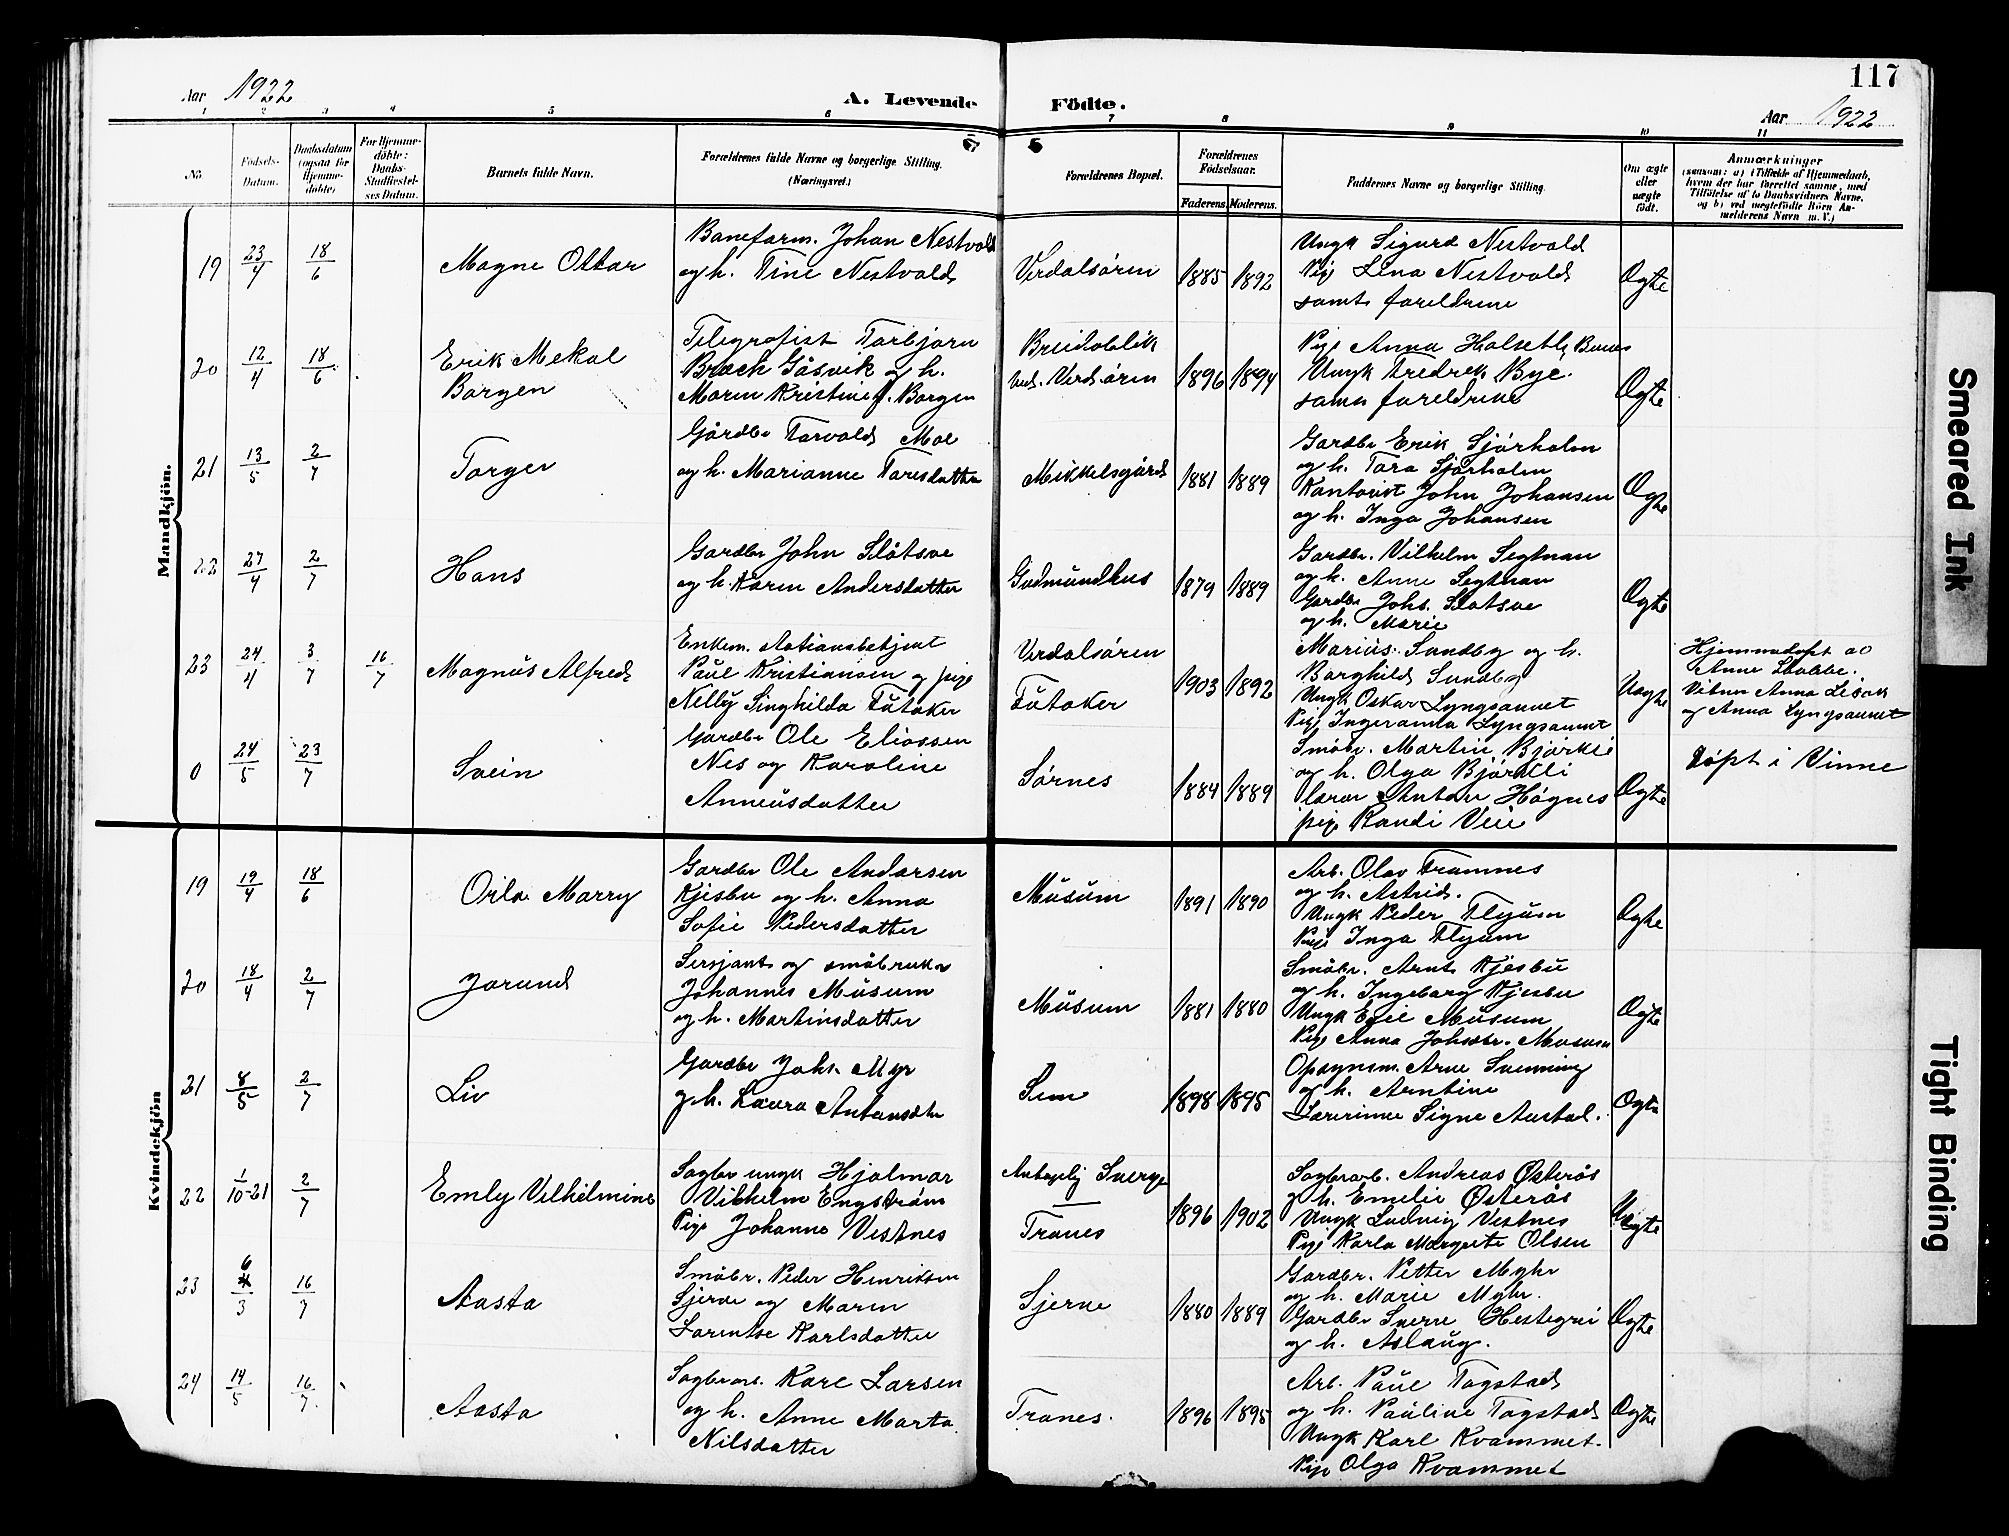 117
Aar 1922 A. Levende Födte. Aar 1922
1 2 3 4 5 6 7 8 9 10 11
No
Födsels-Datum.
Daabsdatum (ogsaa for Hjemmedöbte)
For Hjemmedöbte: Daabs-Stadfæstelses Datum.
Barnets fulde Navn.
Forældrenes fulde Navne og borgerlige Stilling. (Næringsvei.)
Forældrenes Bopæl.
Forældrenes Födselsaar.
Faderens. Moderens.
Faddernes Navne og borgerlige Stilling.
Om ægte eller uægte födt.
Anmærkninger
(saasom: a) i Tilfælde af Hjemmedaab, hvem der har forrettet samme, med Tilföielse af to Daabsvidners Navne, og b) ved uægtefödte Börn Anmelderens Navn m. V.)
Mandkjön.
19 23/4 18/6 Magne Ottar
Baneform. Johan Nestvold
og h. Tine Nestvold
Verdalsøren 1885 1892
Ungk Sigurd Nestvold
Pige Lina Nestvold
samt foreldrene
Ægte
20 12/4 18/6 Erik Mekal
Borgen
Telegrafist Torbjørn
Bræck Gåsvik og h.
Maren Kristine f. Borgen
Breidablik
ved. Verdsøren 1896 1894
Pige Anna Holseth
Ungk Fredrek Bye.
samt foreldrene
Ægte
21 13/5 2/7 Torger
Gårdbr Torvald Moe
og h. Marianne Toresdatter
Mikkelsgård 1881 1889
Gardbr Erik Sjørholm
og h. Tora Sjørholm
Kontorist John Johansen
og h. Inga Johansen
Ægte
22 27/4 2/7 Hans
Gardbr John Slåtsve
og h. Karen Andersdatter
Gudmundhus 1879 1889
Gardbr. Vilhelm Segtnan
og h. Anne Segtnan
Gardbr Johs. Slotsve
og h. Marie
Ægte
23 24/4 3/7 16/7 Magnus Alfred
Enkem.
Paul Kristiansen og pige
Nelly Singhilda Futaker
Verdalsøren
Futaker 1903 1892
Marius Sundby og h.
Borghild Sundby
Ungk Oskar Lyngsaunet
Pige Lyngsaunet
Uægte
Hjemmedøpt av
Anne Stabbe.
Vitner Anna
og Anna Lyngsaunet
0 24/5 23/7 Svein
Gardbr Ole Eliassen
Nes og Karoline
Anneusdatter
Sørnes 1884 1889
Småbr. Martin Bjørkli
og h. Olga Bjørkli
lærer Anton Høgnes
pige Randi Veie
Ægte
Døpt i Vinne
Kvindekjön
19 19/4 18/6 Oila Marry
Gardbr Ole Andersen
Kjesbu og h. Anna
Sofie Pedersdatter
Musum 1891 1890
Arb. Olav Tramnes
og h. Astrid.
Ungk Peder Flyum
Pige Inga Flyum
Ægte
20 18/4 2/7 Jorund
Sersjant og småbruker
Johannes Musum
og h. Martinsdatter
Musum 1881 1880
Småbr. Arnt Kjesbu
og h. Ingeborg Kjesbu
Ungk Egil Musum
Pige Anna Johsdr. Musum
Ægte
21 8/5 2/7 Liv
Gardbr Johs. Myr
og h. Laura Antonsdtr
Sem 1898 1895
Opsynsm. Arne Svenning
og h. Arntine
Lærerinne Signe Austad.
Ægte
22 1/10-21 2/7 Emly Vilhelmine
Sagbr ungk Hjalmar
Vilhelm Engstrøm
Pige Johanna Vestnes
Antagelig Sverge
Tranes 1896 1902
Sagbrarb. Andreas Østerås
og h. Emelie Østerås
Ungk Ludvig Vestnes
Pige Karla Margrete Olsen
Uægte
23 6/3 16/7 Aasta
Småbr. Peder Henriksen
Sjerve og Maren
Lorentse Karlsdatter
Sjerve 1880 1889
Gardbr. Petter Myhr
og h. Marie Myhr.
Gardbr Sverre Hestegrei
og h. Aslaug.
Ægte
24 14/5 16/7 Aasta
Sagbrarb. Karl Larsen
og h. Anne Marta
Nilsdatter
Tranes. 1896 1895
Arb. Paul Togstad
og h. Pauline Togstad
Ungk Karl Kvammet.
Pige Olga Kvammet
Ægte
Smeared Ink
Tight Binding